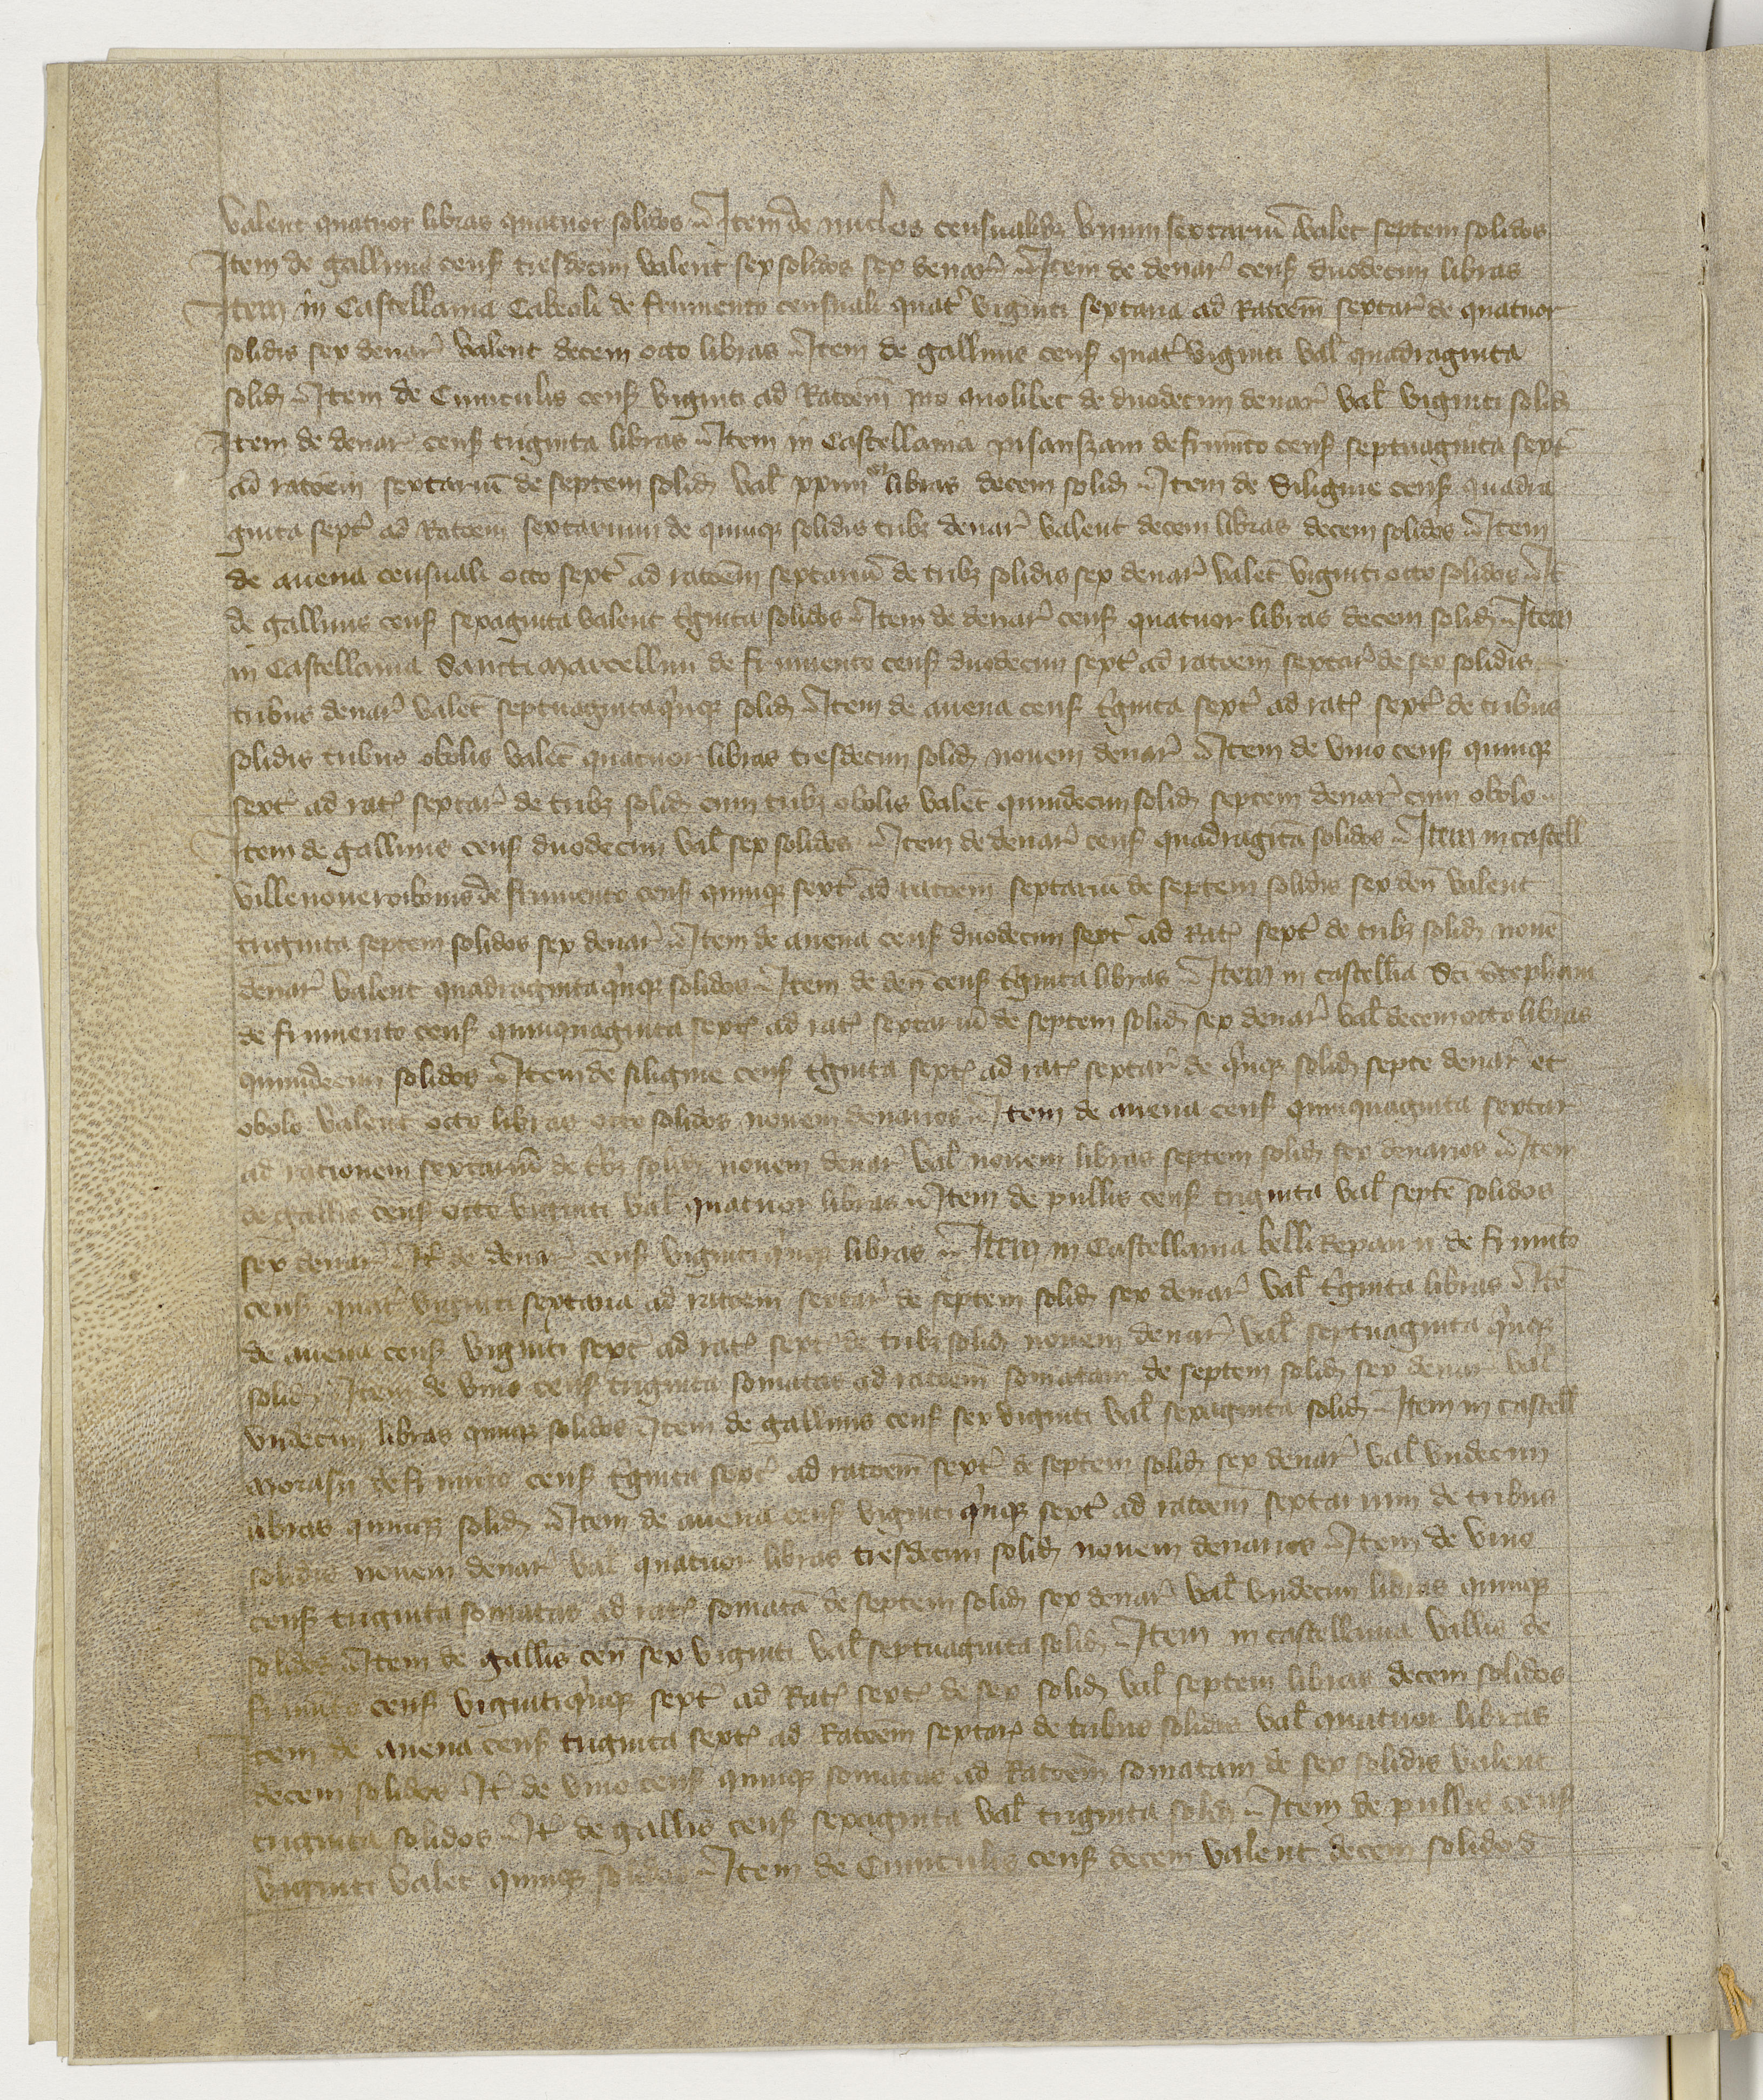 valent quatuor libras quatuor solidos Item de nucleis censualibz unum sextariu valet septem solidos
Item de gallinis cens tresdecim valent sex solidos sex denar Item de denar cens duodecim libras
Item in Castellania Cabeoli de frumento censuali quatr viginti sextaria ad Ratoem sextar de quatuor
solidis sex denar valent decem octo libras Item de gallinis cens quatr viginti val quadraginta
solid Item de Cuniculis cens viginti ad Ratoem pro quolibet de duodecim denar val viginti solid
Item de denar cens triginta libras Item in Castellania pisansiani de frumto cens septuaginta sext
ad ratoem sextariu de septem solid val xxiiii or libras decem solid Item de Siligine cens quadra
ginta sext ad Ratoem sextarium de quinqz solidis tribz denar valent decem libras decem solidos Item
de avena censuali octo sext ad ratoem sextariu de tribz solidis sex denar valet viginti octo solidos It
de gallinis cens sexaginta valent triginta solidos Item de denar cens quatuor libras decem solid Item
in Castellania Sancti Marcellini de frumento cens duodecim sext ad ratoem sextar de sex solidis
tribus denar valet septuaginta quinqz solid Item de avena cens triginta sext ad rat sext de tribus
solidis tribus obolis valet quatuor libras tresdecim solid novem denar Item de vino cens quinqz
sext ad rat sextar de tribz solid cum tribz obolis valet quindecim solid septem denar cum obolo
Item de gallinis cens duodecim val sex solidos Item de denar cens quadragita solidos Item in castell
ville nove roibonis de frumento cens quinqz sext ad ratoem sextariu de septem solidis sex den valent
triginta septem solidos sex denar Item de avena cens duodecim sext ad Rat sext de tribz solid nove
denar valent quadraginta quinqz solidos Item de den cens triginta libras Item in castellia Sci Stephani
de frumento cens quinquaginta sext ad rat sextariu de septem solid sex denar val decem octo libras
quindecim solidos Item de siligine cens triginta sext ad rat sextar de quinqz solid septe denar et
obolo valent octo libras octo solidos novem denarios Item de avena cens quinquaginta sextar
ad rationem sextariu de tribz solid novem denar val novem libras septem solid sex denarios Item
de gallis cens octo viginti val quatuor libras Item de pullis cens triginta val septe solidos
sex denar It de denar cens viginti quinqz libras Item in Castellania belli Reparii de frumto
cens quatr viginti sextaria ad ratoem sextar de septem solid sex denar val triginta libras Ite
de avena cens viginti sext ad rat sext de tribz solid novem denar val septuaginta quinqz
solid Item de vino cens triginta somatas ad ratoem somatam de septem solid sex denar val
undecim libras quinqz solidos Item de gallinis cens sex viginti val sexaginta solid Item in castell
Morasii de frumto cens triginta sext ad ratoem sext de septem solid sex denar val undecim
libras quinqz solid Item de avena cens viginti quinqz sext ad ratoem sextarium de tribus
solidis novem denar val quatuor libras tresdecim solid novem denarios Item de vino
cens triginta somatas ad rat somata de septem solid sex denar val undecim libras quinqz
solidos Item de gallis cen sex viginti val septuaginta solid Item in castellania vallis de
frumto cens viginti quinqz sext ad Rat sext de sex solid val septem libras decem solidos
Item de avena cens triginta sext ad Ratoem sextar de tribus solidis val quatuor libras
decem solidos It de vino cens quinqz somatas ad Ratoem somatam de sex solidis valent
triginta solidos It de gallis cens sexaginta val triginta solid Item de pullis cens
viginti valet quinqz solidos Item de Cuniculis cens decem valent decem solidos